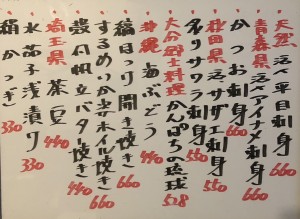 天然 活〆平目刺身 660
青森県 活〆アイナメ刺身 660
かつお刺身 660
秋田県 活サザエ刺身 550
名リサワラ刺身 550
大分郷土料理 かんぱちの琉球 528
沖縄 海ぶどう 440
縞ほっけ開き焼き 660
するめいか丸ホイル焼き 660
殻付帆立バター焼き 440
埼玉県 茶豆 440
水茄子浅漬け 330
絹かつぎ 330